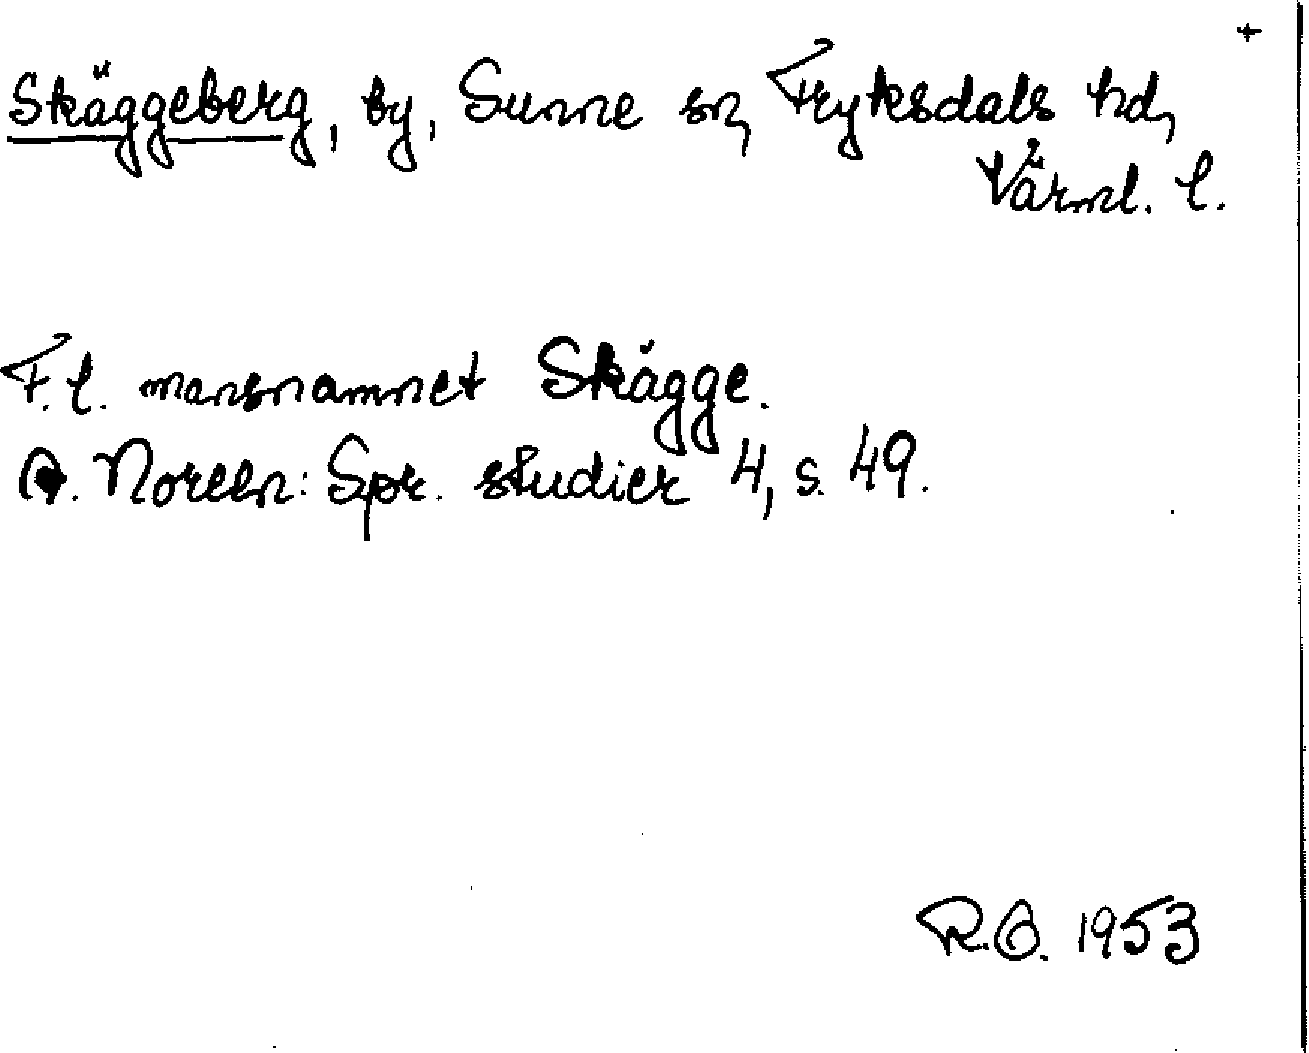 +
Skäggeberg, by, Sunne sn, Fryksdals hd,
Värml. l.
F.l. mansnamnet Skägge.
A. Noreen: Spr. studier 4, s. 49.
R.O. 1953